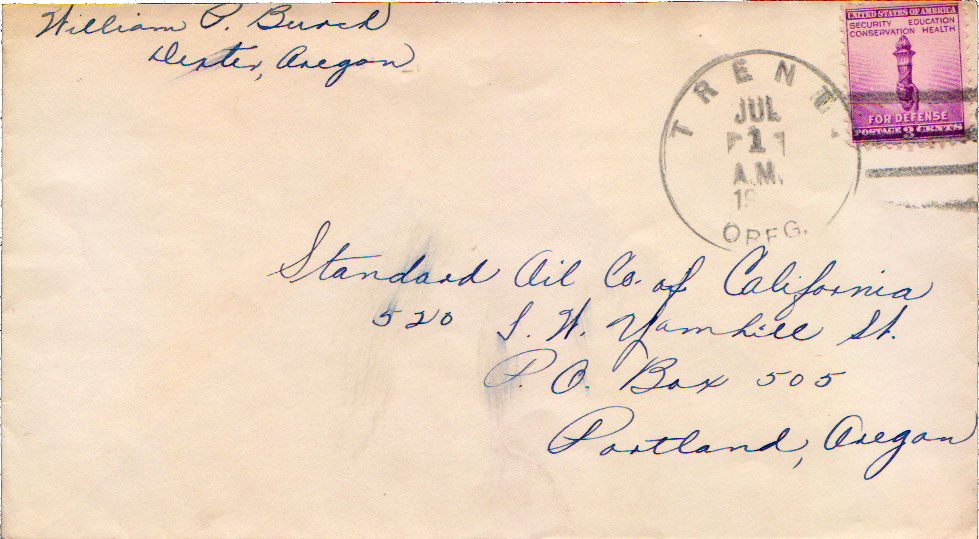 William P. Bursch
Dexter, Oregon
UNITED STATES OF AMERICA
SECURITY EDUCATION
CONSERVATION HEALTH
FOR DEFENSE
POSTAGE 3 CENTS
TRENT.
JUL
1
A.M.
19
OREG.
Standard Oil Co. of California
520 S. W. Yamhill St.
P. O. Box 505
Portland, Oregon